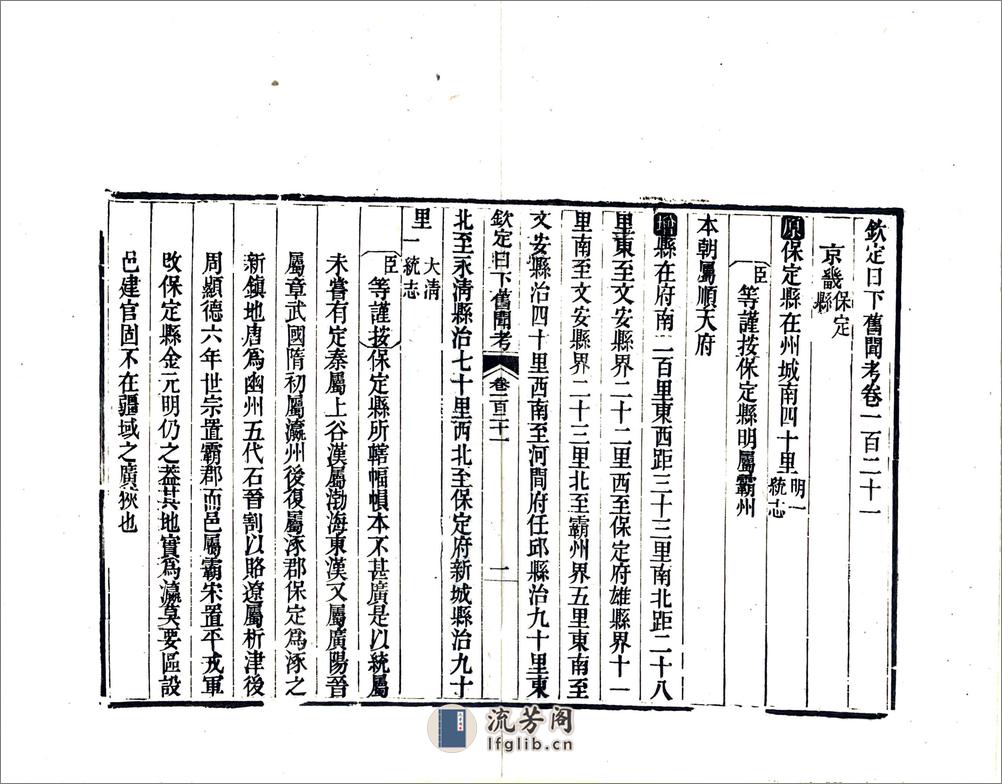 欽定日下舊聞考卷一百二十一
京畿保定縣
原保定縣在州城南四十里明一統志
臣等謹按保定縣明屬霸州
本朝屬順天府
增縣在府南二百里東西距三十三里南北距二十八
里東至文安縣界二十二里西至保定府雄縣界十一
里南至文安縣界二十三里北至霸州界五里東南至
文安縣治四十里西南至河間府任邱縣治九十里東
欽定日下舊聞考 卷一百二十一 一
北至永清縣治七十里西北至保定府新城縣治九十
里大清一統志
臣等謹按保定縣所轄幅幀本不甚廣是以統屬
未嘗有定秦屬上谷漢屬渤海東漢又屬廣陽晉
屬章武國隋初屬瀛州後復屬涿郡保定為涿之
新鎮地唐為幽州五代石晉割以賂遼屬析津後
周顯德六年世宗置霸郡而邑屬霸宋置平戎軍
改保定縣金元明仍之蓋其地實為瀛莫要區設
邑建官固不在疆域之廣狹也
流芳阁
lfglib.cn